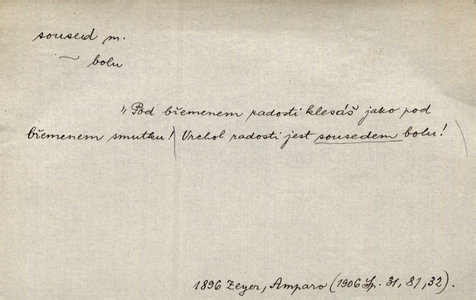 soused m.
~ bolu
„Pod břemenem radosti klesáš jako pod
břemenem smutku! Vrchol radosti jest sousedem bolu!
1896 Zeyer, Amparo (1906 Sp. 31, 81, 32)